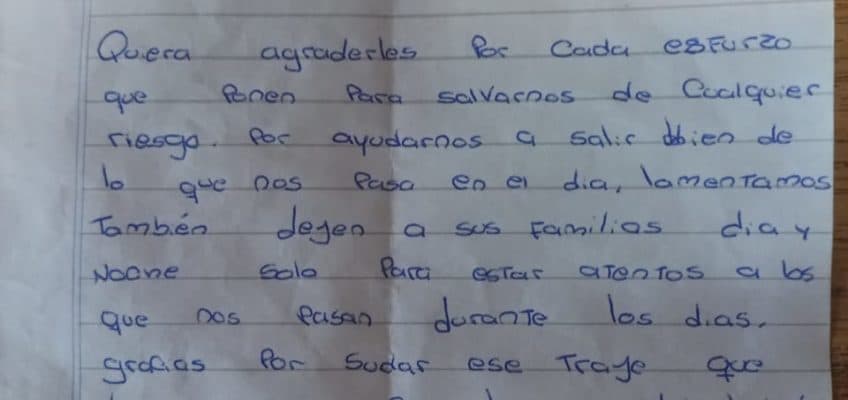 Quiera agraderles por cada esfurzo
que ponen para salvarnos de cualquier
riesgo. por ayudarnos a salir bien de
lo que nos pasa en el dia, lamentamos
también dejen a sus familios dia y
Noche solo para estar atentos a los
que nos pasan durante los dias.
gracias por sudar ese traje que